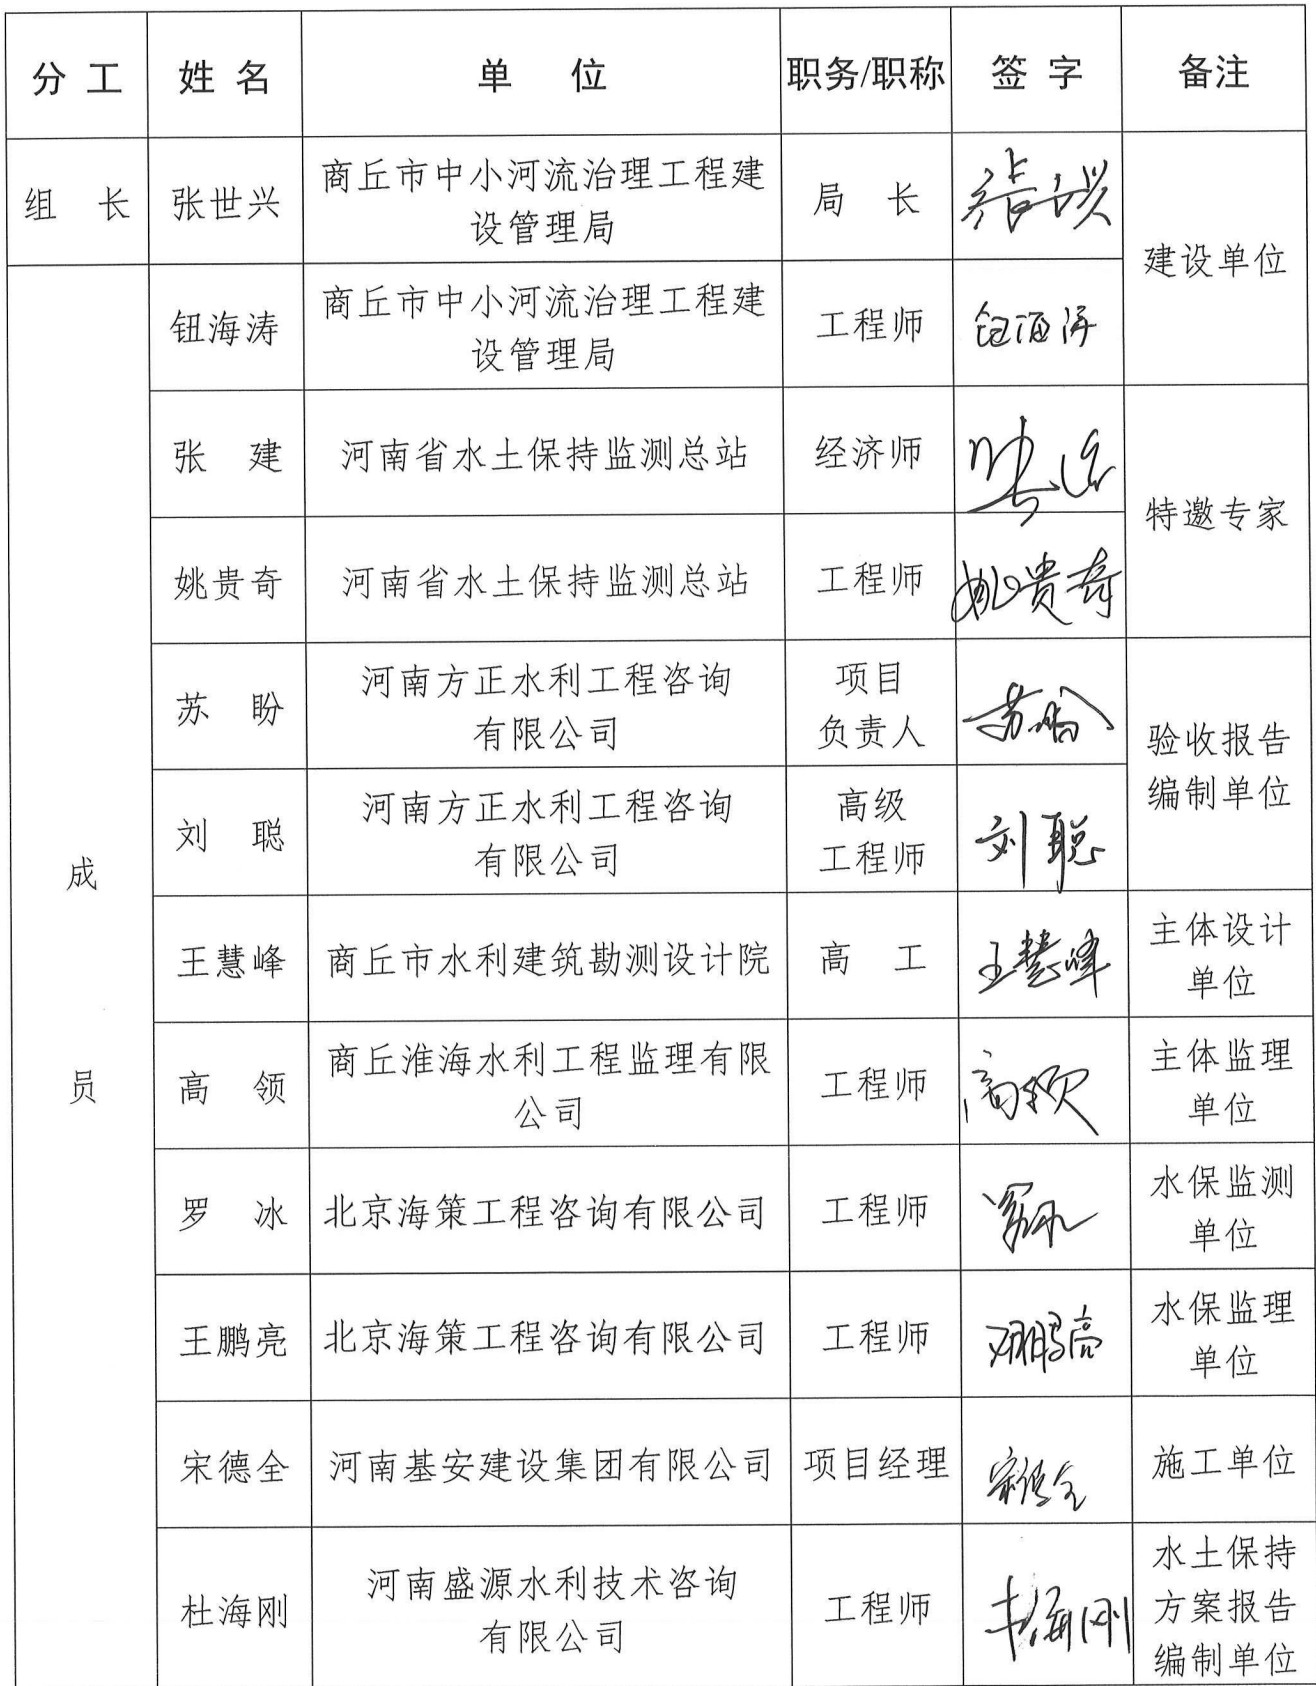 分 工 姓 名 单 位 职务/职称 签 字 备注
组 长 张世兴 商丘市中小河流治理工程建
设管理局 局 长 张世兴 建设单位
成 员
钮海涛 商丘市中小河流治理工程建
设管理局 工程师 钮海涛
张 建 河南省水土保持监测总站 经济师 张建 特邀专家
姚贵奇 河南省水土保持监测总站 工程师 姚贵奇
苏 盼 河南方正水利工程咨询
有限公司 项目
负责人 苏盼 验收报告
编制单位
刘 聪 河南方正水利工程咨询
有限公司 高级
工程师 刘聪
王慧峰 商丘市水利建筑勘测设计院 高 工 王慧峰 主体设计
单位
高 领 商丘淮海水利工程监理有限
公司 工程师 高领 主体监理
单位
罗 冰 北京海策工程咨询有限公司 工程师 罗冰 水保监测
单位
王鹏亮 北京海策工程咨询有限公司 工程师 王鹏亮 水保监理
单位
宋德全 河南基安建设集团有限公司 项目经理 宋德全 施工单位
杜海刚 河南盛源水利技术咨询
有限公司 工程师 杜海刚 水土保持
方案报告
编制单位